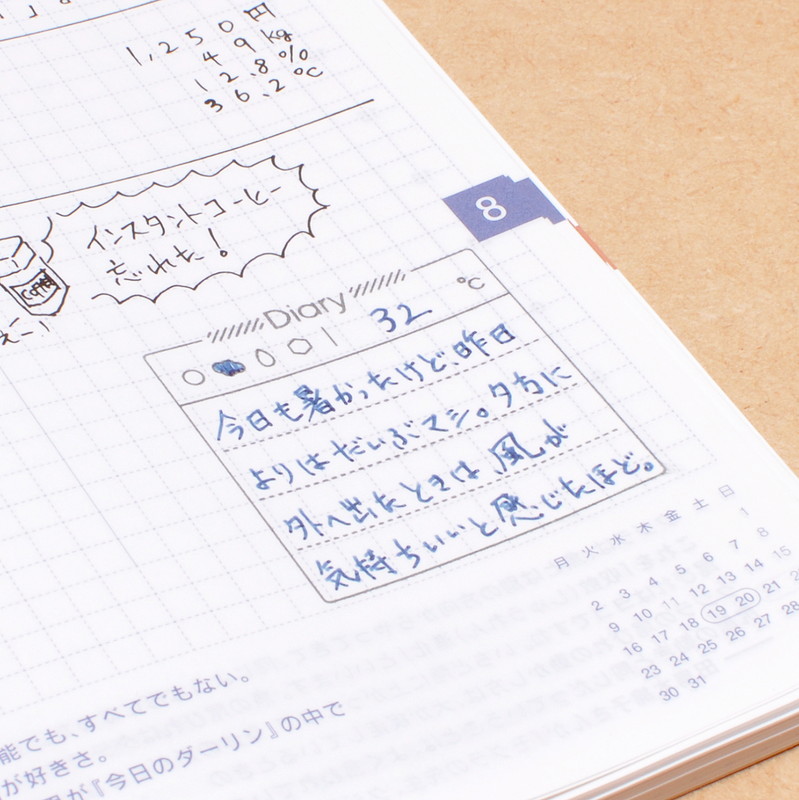 1,250円
49kg
12.8%
36.2℃
インスタントコーヒー
忘れた!
8
Diary
32 ℃
今日も暑かったけど、昨日
よりはだいぶマシ。夕方に
外へ出たときは、風が
気持ちいいと感じたほど。
月 火 水 木 金 土 日
1
2 3 4 5 6 7 8
9 10 11 12 13 14 15
16 17 18 19 20 21 22
23 24 25 26 27 28
30 31
能でも、すべてでもない。
が好きさ。
が『今日のダーリン』の中で